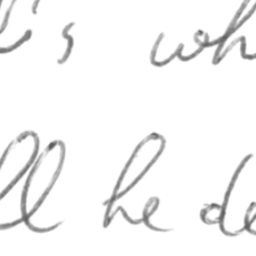 's wh
ll he de